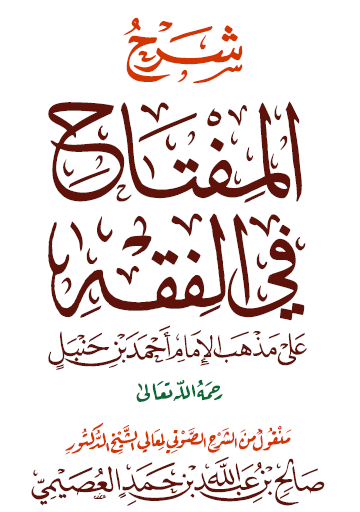 شرح
المفتاح
في الفقه
على مذهب الإمام أحمد بن حنبل
رحمه الله تعالى
منقول من الشرح الصوتي لمعالي الشيخ الدكتور
صالح بن عبد الله بن حمد العصيمي